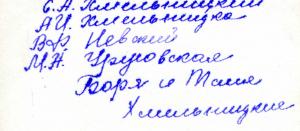 Е.А. Хмельницкий
А.И. Хмельницка
В.Ф. Невский
М.Н. Чруновская
Боря и Таня
Хмельницкие